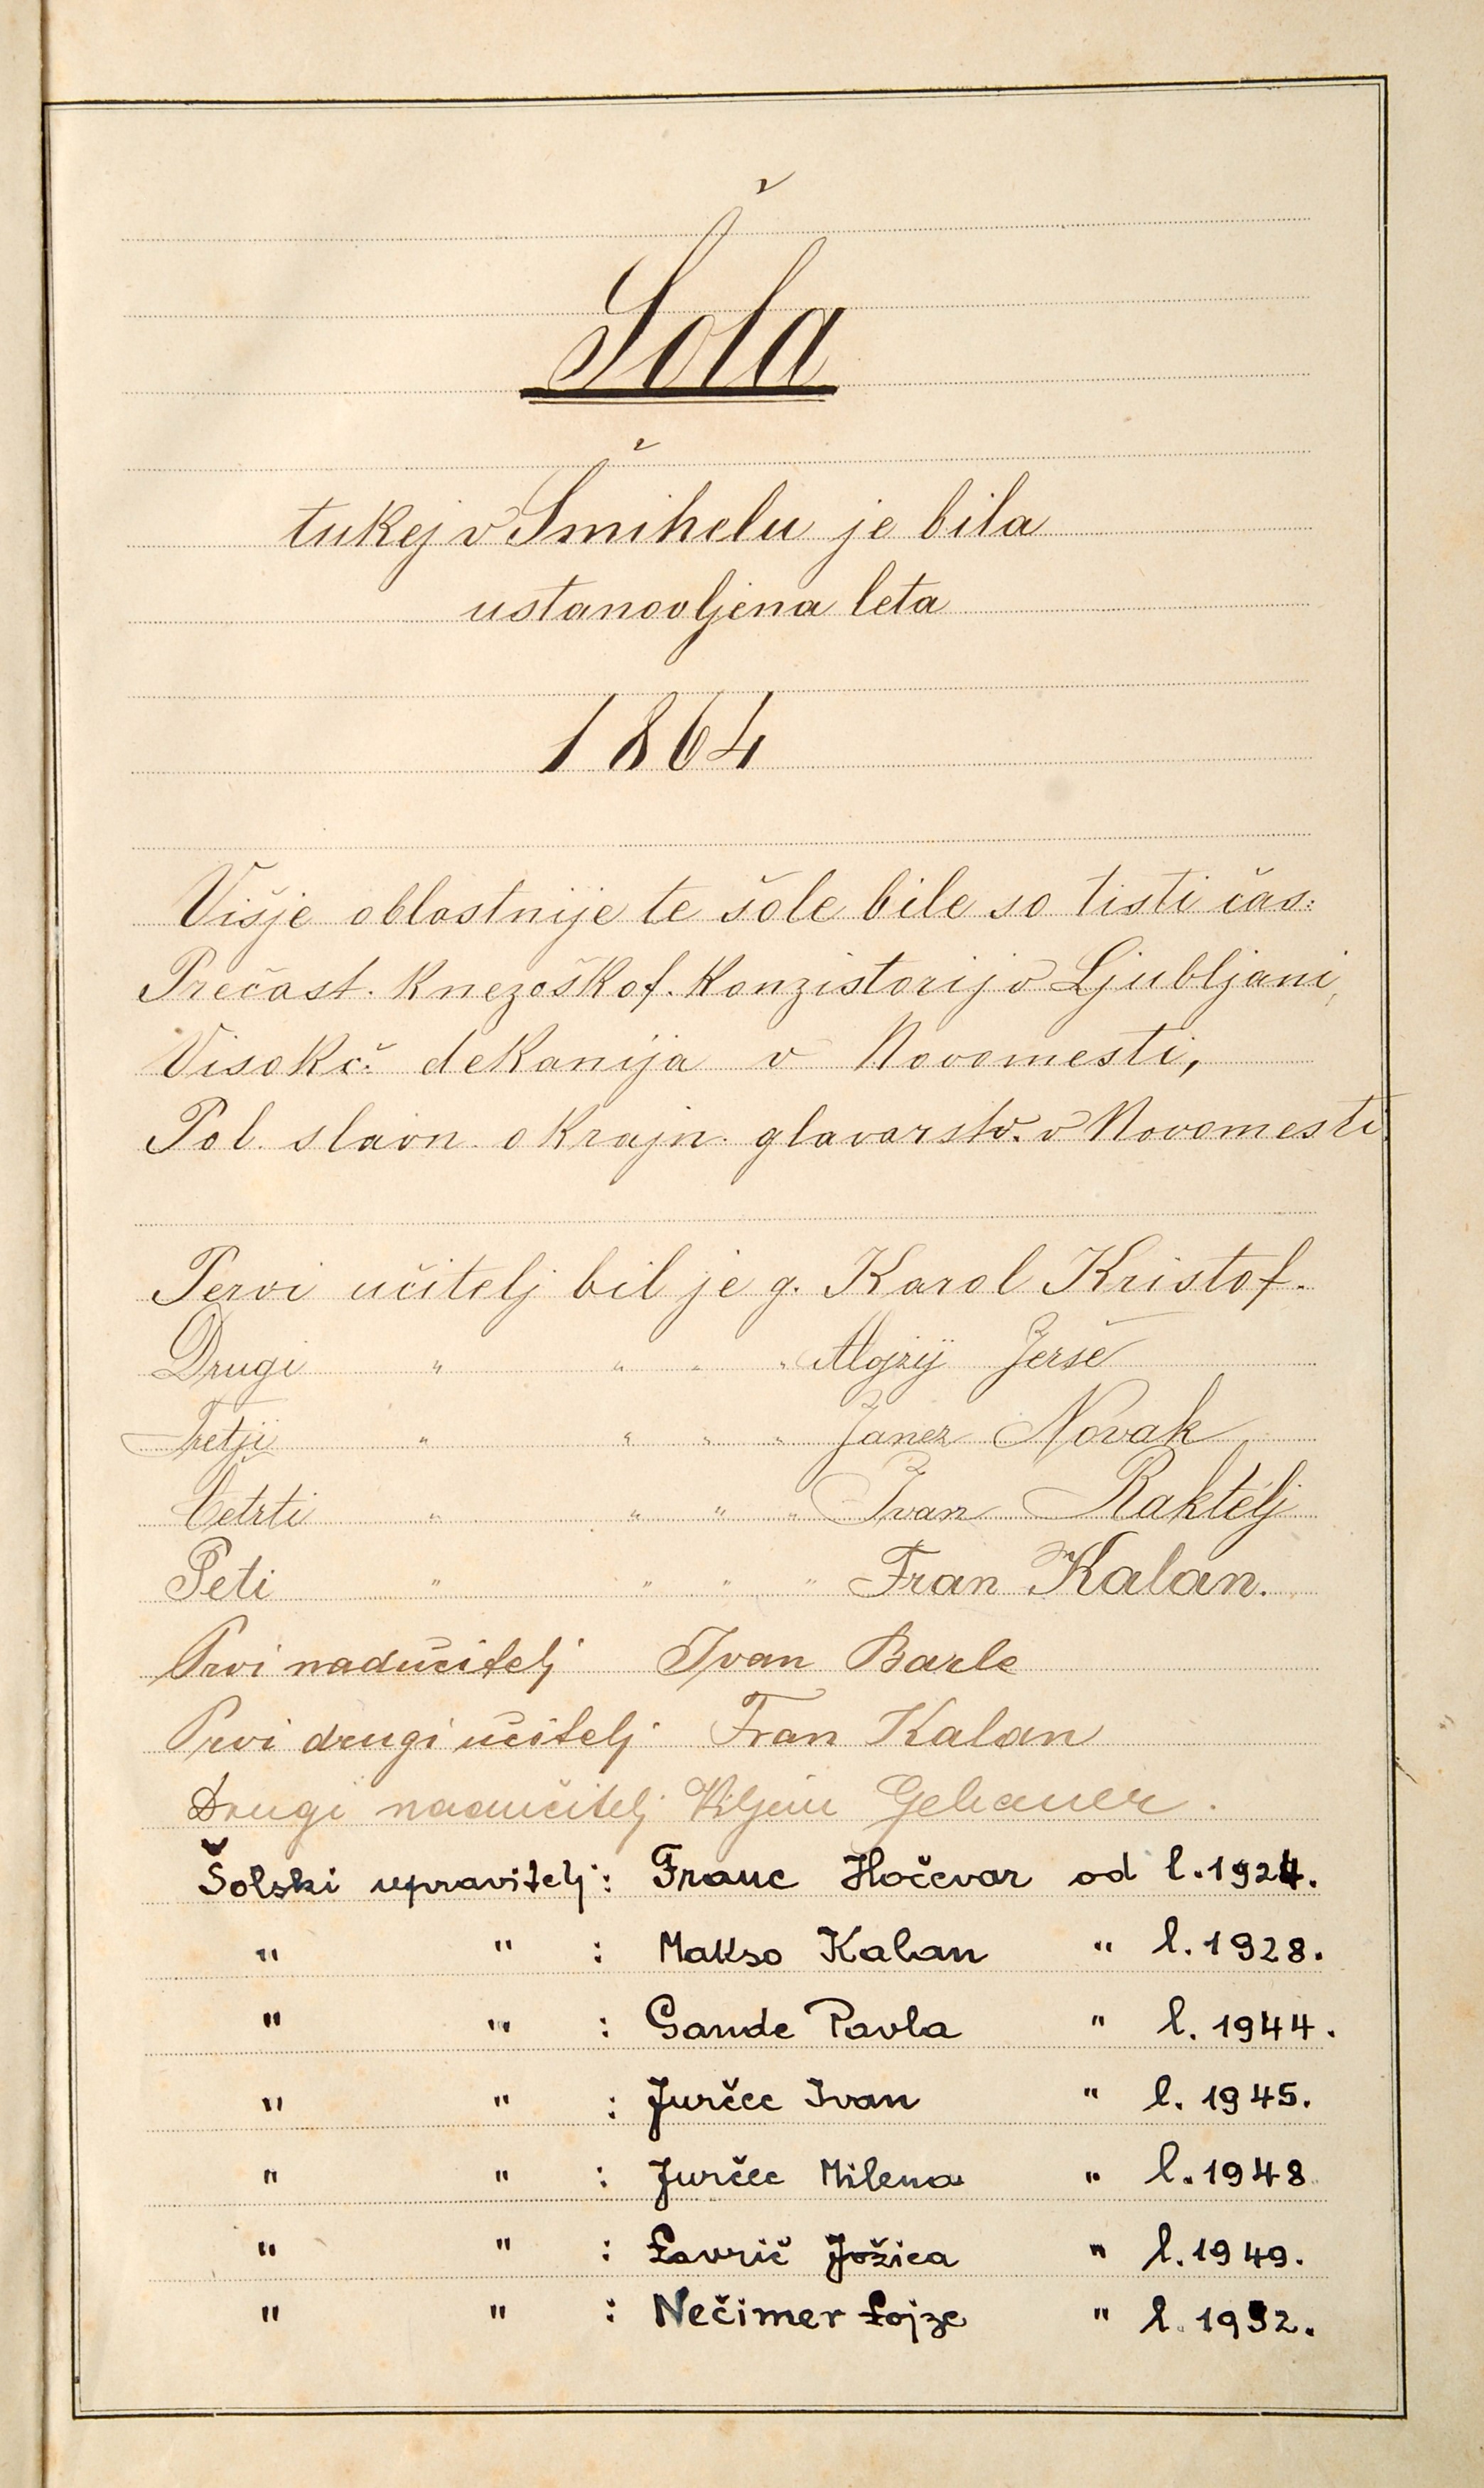 Šola
tukej v Šmihelu je bila
ustanovljena leta
1864
Višje oblastnije te šole bile so tisti čas:
Prečast. knezoškof. konzistorij v Ljubljani,
Visokč. dekanija v Novomesti,
Pol. slavn. okrajn. glavarstv. v Novomesti.
Pervi učitelj bil je g. Karol Kristof.
Drugi " " " " Alojzij Jerše
Tretji " " " " Janez Novak
Četrti " " " " Ivan Raktelj
Peti " " " " Fran Kalan.
Prvi nadučitelj Ivan Barle
Prvi drugi učitelj Fran Kalan
Drugi nadučitelj Viljem Gebauer.
Šolski upravitelj: Franc Hočevar od l. 1924.
" " : Makso Kalan " l. 1928.
" " : Gande Pavla " l. 1944.
" " : Jurčec Ivan " l. 1945.
" " : Jurčec Milena " l. 1948
" " : Lavrič Jožica " l. 1949.
" " : Nečimer Lojze " l. 1952.